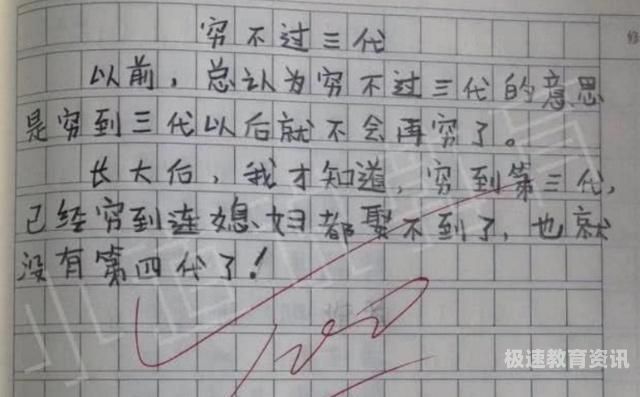 穷不过三代
以前，总认为穷不过三代的意思
是穷到三代以后就不会再穷了。
长大后，我才知道，穷到第三代，
已经穷到连媳妇都娶不到了，也就
没有第四代了！
100
极速教育资讯